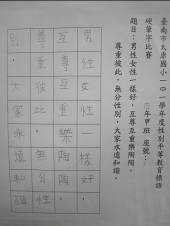 臺南市太康國小一０一學年度性別平等教育標語
硬筆字比賽 年甲班 座號：
題目：男性女性一樣好，互尊互重樂陶陶。
尊重彼此，無分性別，大家永遠和諧。
男性女性一樣好，
互尊互重樂陶陶。
尊重彼此，無分性
別，大家永遠和諧